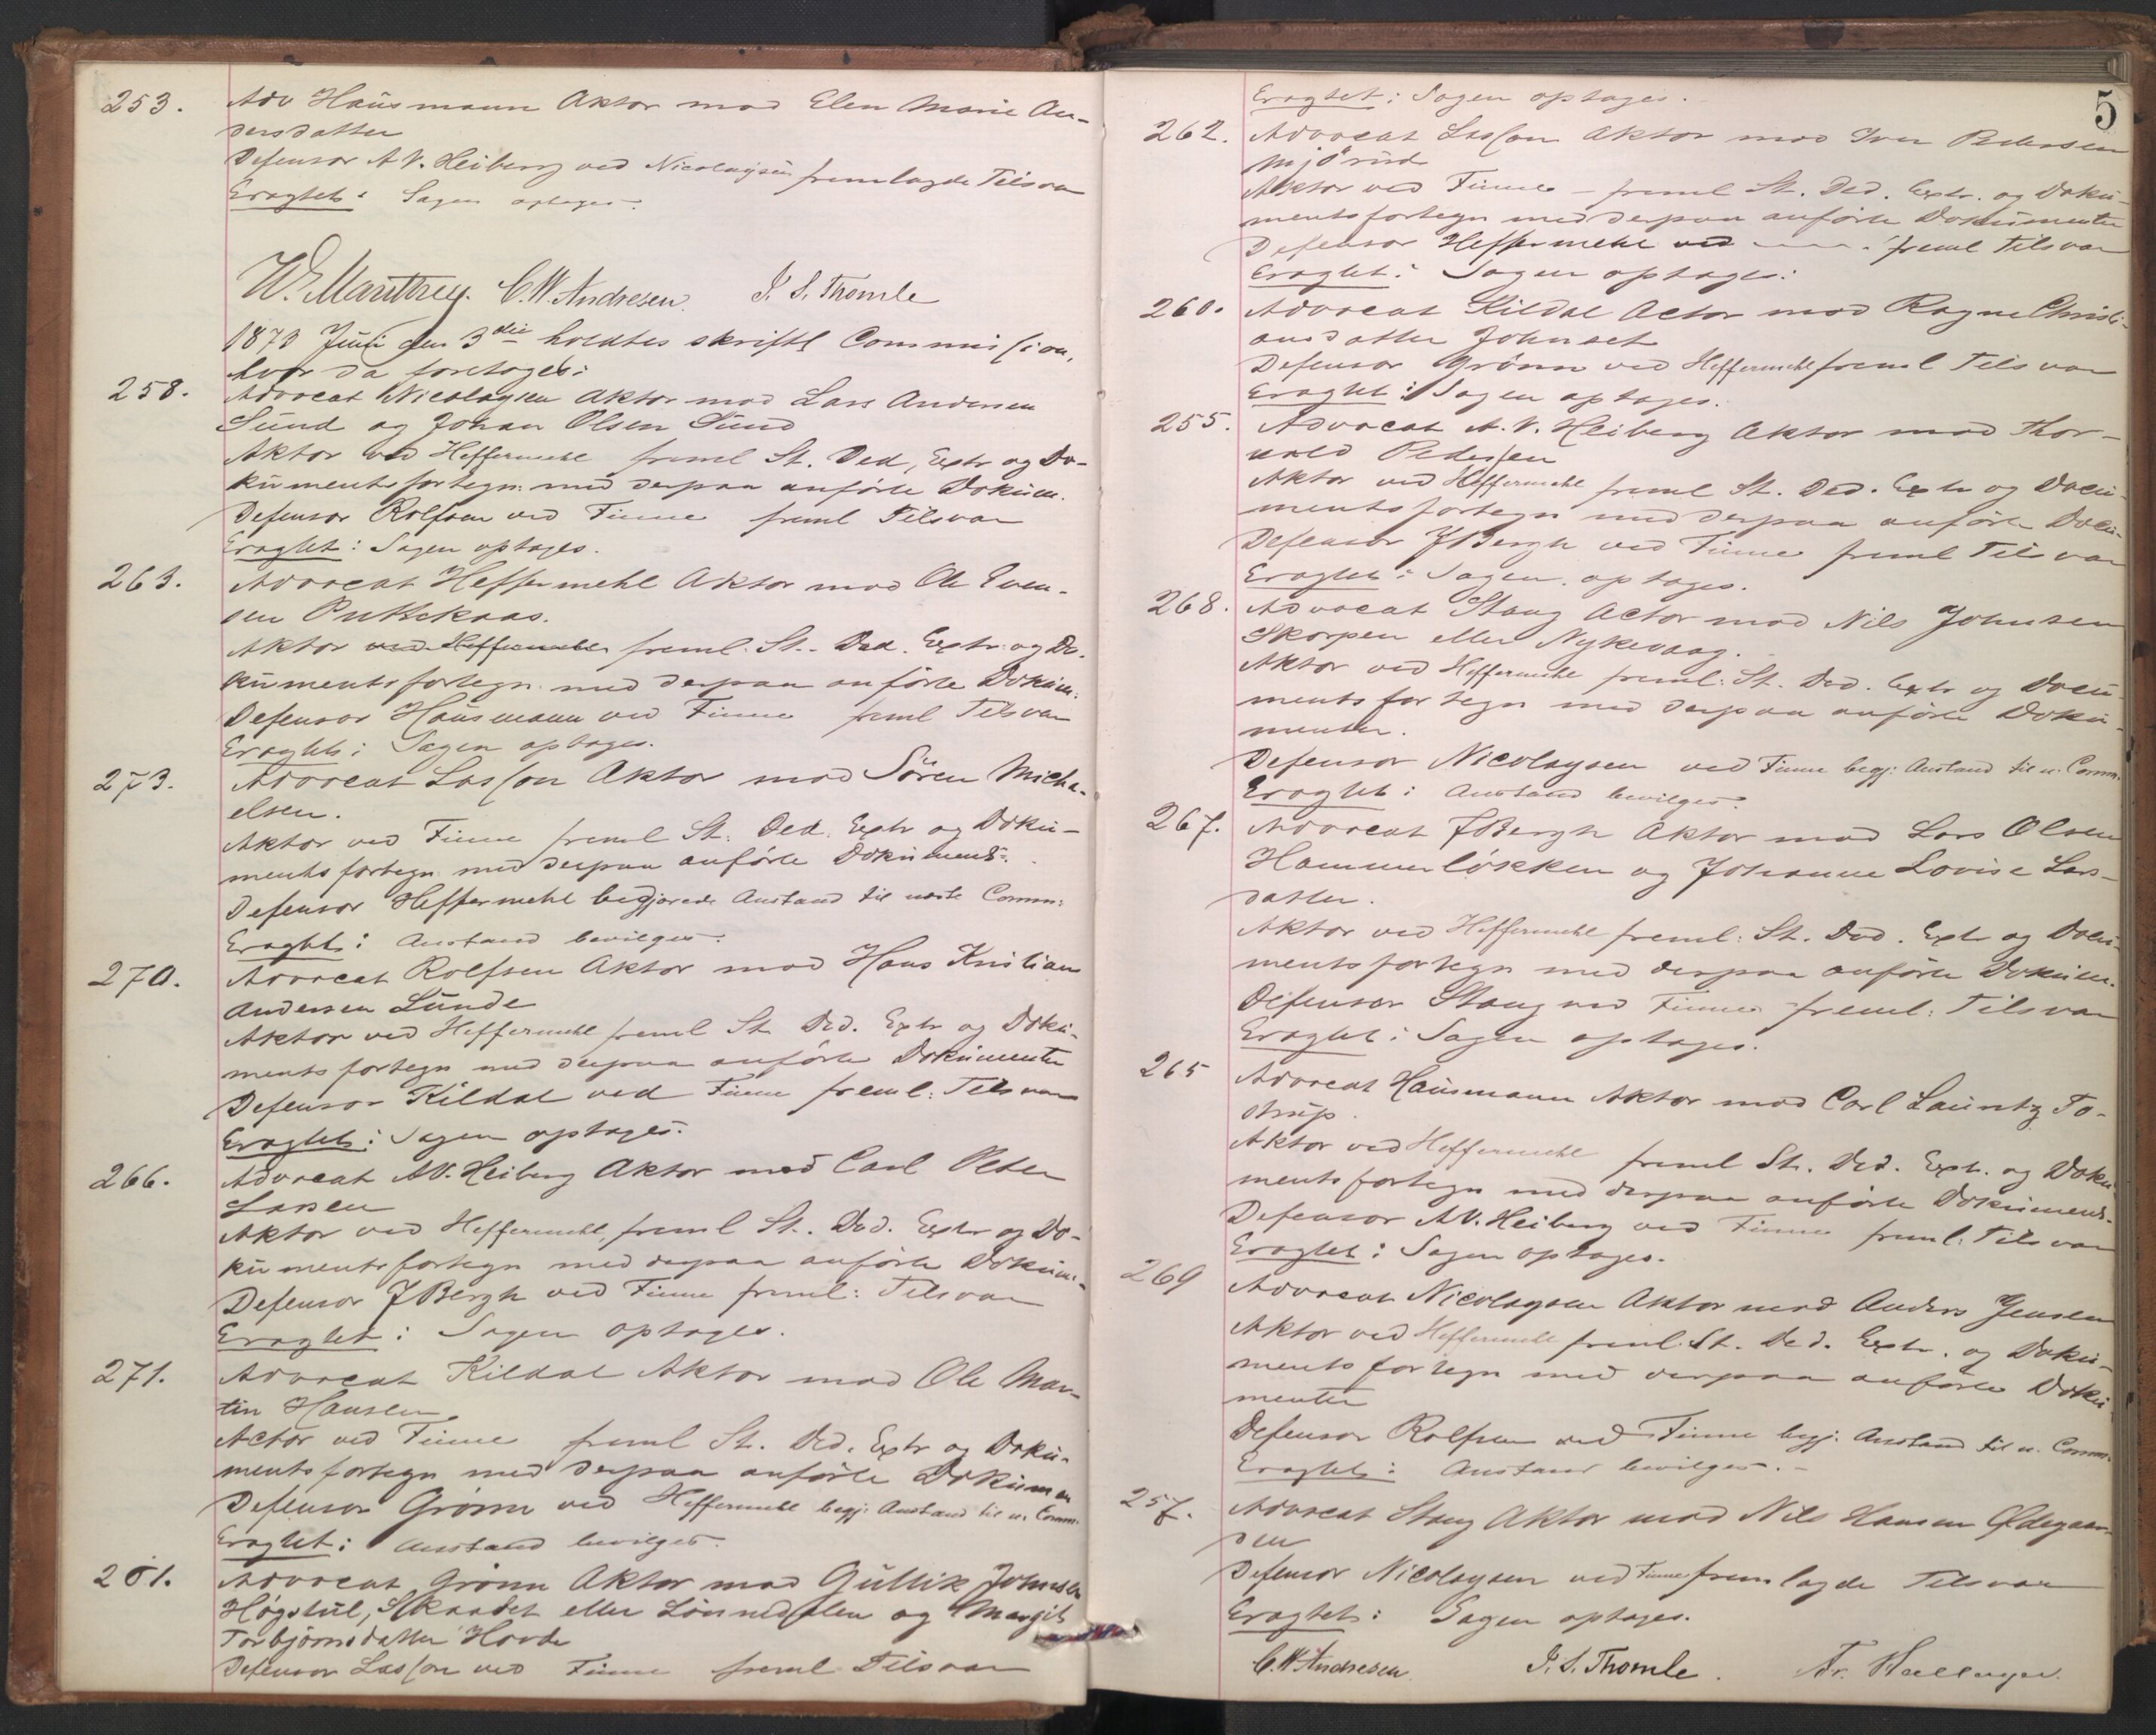 253. Adv Hausmann Aktor mod Elen Marie An-
dersdatter
Defensor A V. Heiberg ved Nicolaysen fremlagde Tilsvar
Eragtet: Sagen optages.
C. W. Andresen. J. S. Thomle
1873 Juni den 3die holdtes skriftl Commission,
hvor da foretoges:
258. Advocat Nicolaysen Aktor mod Lars Andersen
Sund og Johan Olsen Sund
Aktor ved Heffermehl freml St. Ded, Extr og Do-
kumentsfortegn: med derpaa anförte Dokum.
Defensor Rolfsen ved Finne freml Tilsvar
Eragtet: Sagen optages.
263. Advocat Heffermehl Aktor mod Ole Even-
sen Puttekaas.
Aktor ved Heffermehl freml: St. Ded. Extr: og Do-
kumentsfortegn. med derpaa anförte Dokum:
Defensor Hausmann ved Finne freml Tilsvar
Eragtet: Sagen optages.
273. Advocat Lasson Aktor mod Sören Micha-
elsen.
Aktor ved Finne freml St. Ded. Extr og Doku-
mentsfortegn. med derpaa anförte Dokument:
Defensor Heffermehl begjærede Anstand til næste Comm:
Eragtet: Anstand bevilges.
270. Advocat Rolfsen Aktor mod Hans Kristian
Andersen Lunde
Aktor ved Heffermehl freml St Ded. Extr og Doku-
mentsfortegn med derpaa anförte Dokumenter
Defensor Kildal ved Finne freml: Tilsvar
Eragtet: Sagen optages.
266. Advocat A.V. Heiberg Aktor mod Carl Peter
Larsen
Aktor ved Heffermehl, freml St. Ded. Extr og Do-
kumentsfortegn med derpaa anförte Dokum:
Defensor J Bergh ved Finne freml: Tilsvar
Eragtet: Sagen optages.
271. Advocat Kildal Aktor mod Ole Mar-
tin Hansen
Actor ved Finne freml St. Ded. Extr og Doku-
mentsfortegn med derpaa anförte Dokumen
Defensor Grönn ved Heffermehl begj: Anstand til n. Comm.
Eragtet: Anstand bevilges.
201. Advocat Grönn Aktor mod Gullik Johnsen
Högstul, Skaadet eller Lönnedalen og Margit
Torbjörnsdatter Hovde
Defensor Lasson ved Finne freml Tilsvar
5
Eragtet: Sagen optages.
262. Advocat Lasson Aktor mod Iver Pedersen
Mjörud
Aktor ved Finne – freml St. Ded. Extr. og Doku-
mentsfortegn med derpaa anförte Dokumenter
Defensor Heffermehl ved freml Tilsvar
Eragtet: Sagen optages.
260. Advocat Kildal Actor mod Ragne Christi-
ansdatter Johnset
Defensor Grönn ved Heffermehl freml Tilsvar
Eragtet: Sagen optages.
255. Advocat A. V. Heiberg Aktor mod Thor-
vald Pedersen
Aktor ved Heffermehl freml St. Ded. Extr og Docu-
mentsfortegn med derpaa anförte Docu-
Defensor J Bergh ved Finne freml Tilsvar
Eragtet: Sagen optages.
268. Advocat Stang Actor mod Nils Johnsen
Skorpen eller Nykevaag.
Aktor ved Heffermehl freml: St. Ded. Extr og Docu-
mentsfortegn med derpaa anförte Doku-
menter.
Defensor Nicolaysen ved Finne begj: Anstand til n. Comm.
Eragtet: Anstand bevilges.
267. Advocat J Bergh Aktor mod Lars Olsen
Hammerlökken og Johanne Lovise Lars-
datter.
Aktor ved Heffermehl freml: St. Ded. Extr og Docu-
mentsfortegn med derpaa anförte Dokum.
Defensor Stang ved Finne freml: Tilsvar
Eragtet: Sagen optages.
265 Advocat Hausmann Aktor mod Carl Lauritz To-
strup.
Aktor ved Heffermehl freml St. Ded. Extr. og Doku-
mentsfortegn med derpaa anförte Dokument-
Defensor A.V. Heiberg ved Finne freml: Tilsvar
Eragtet: Sagen optages.
269 Advocat Nicolaysen Aktor mod Anders Jensen
Aktor ved Heffermehl freml. St. Ded. Extr. og Doku-
mentsfortegn med derpaa anförte Doku-
menter
Defensor Rolfsen ved Finne begj. Anstand til n. Comm.
Eragtet: Anstand bevilges.
257. Advocat Stang Aktor mod Nils Hansen Ödegaar-
den
Defensor Nicolaysen ved Finne fremlagde Tilsvar
Eragtet: Sagen optages.
C. W. Andresen. J. S. Thomle.